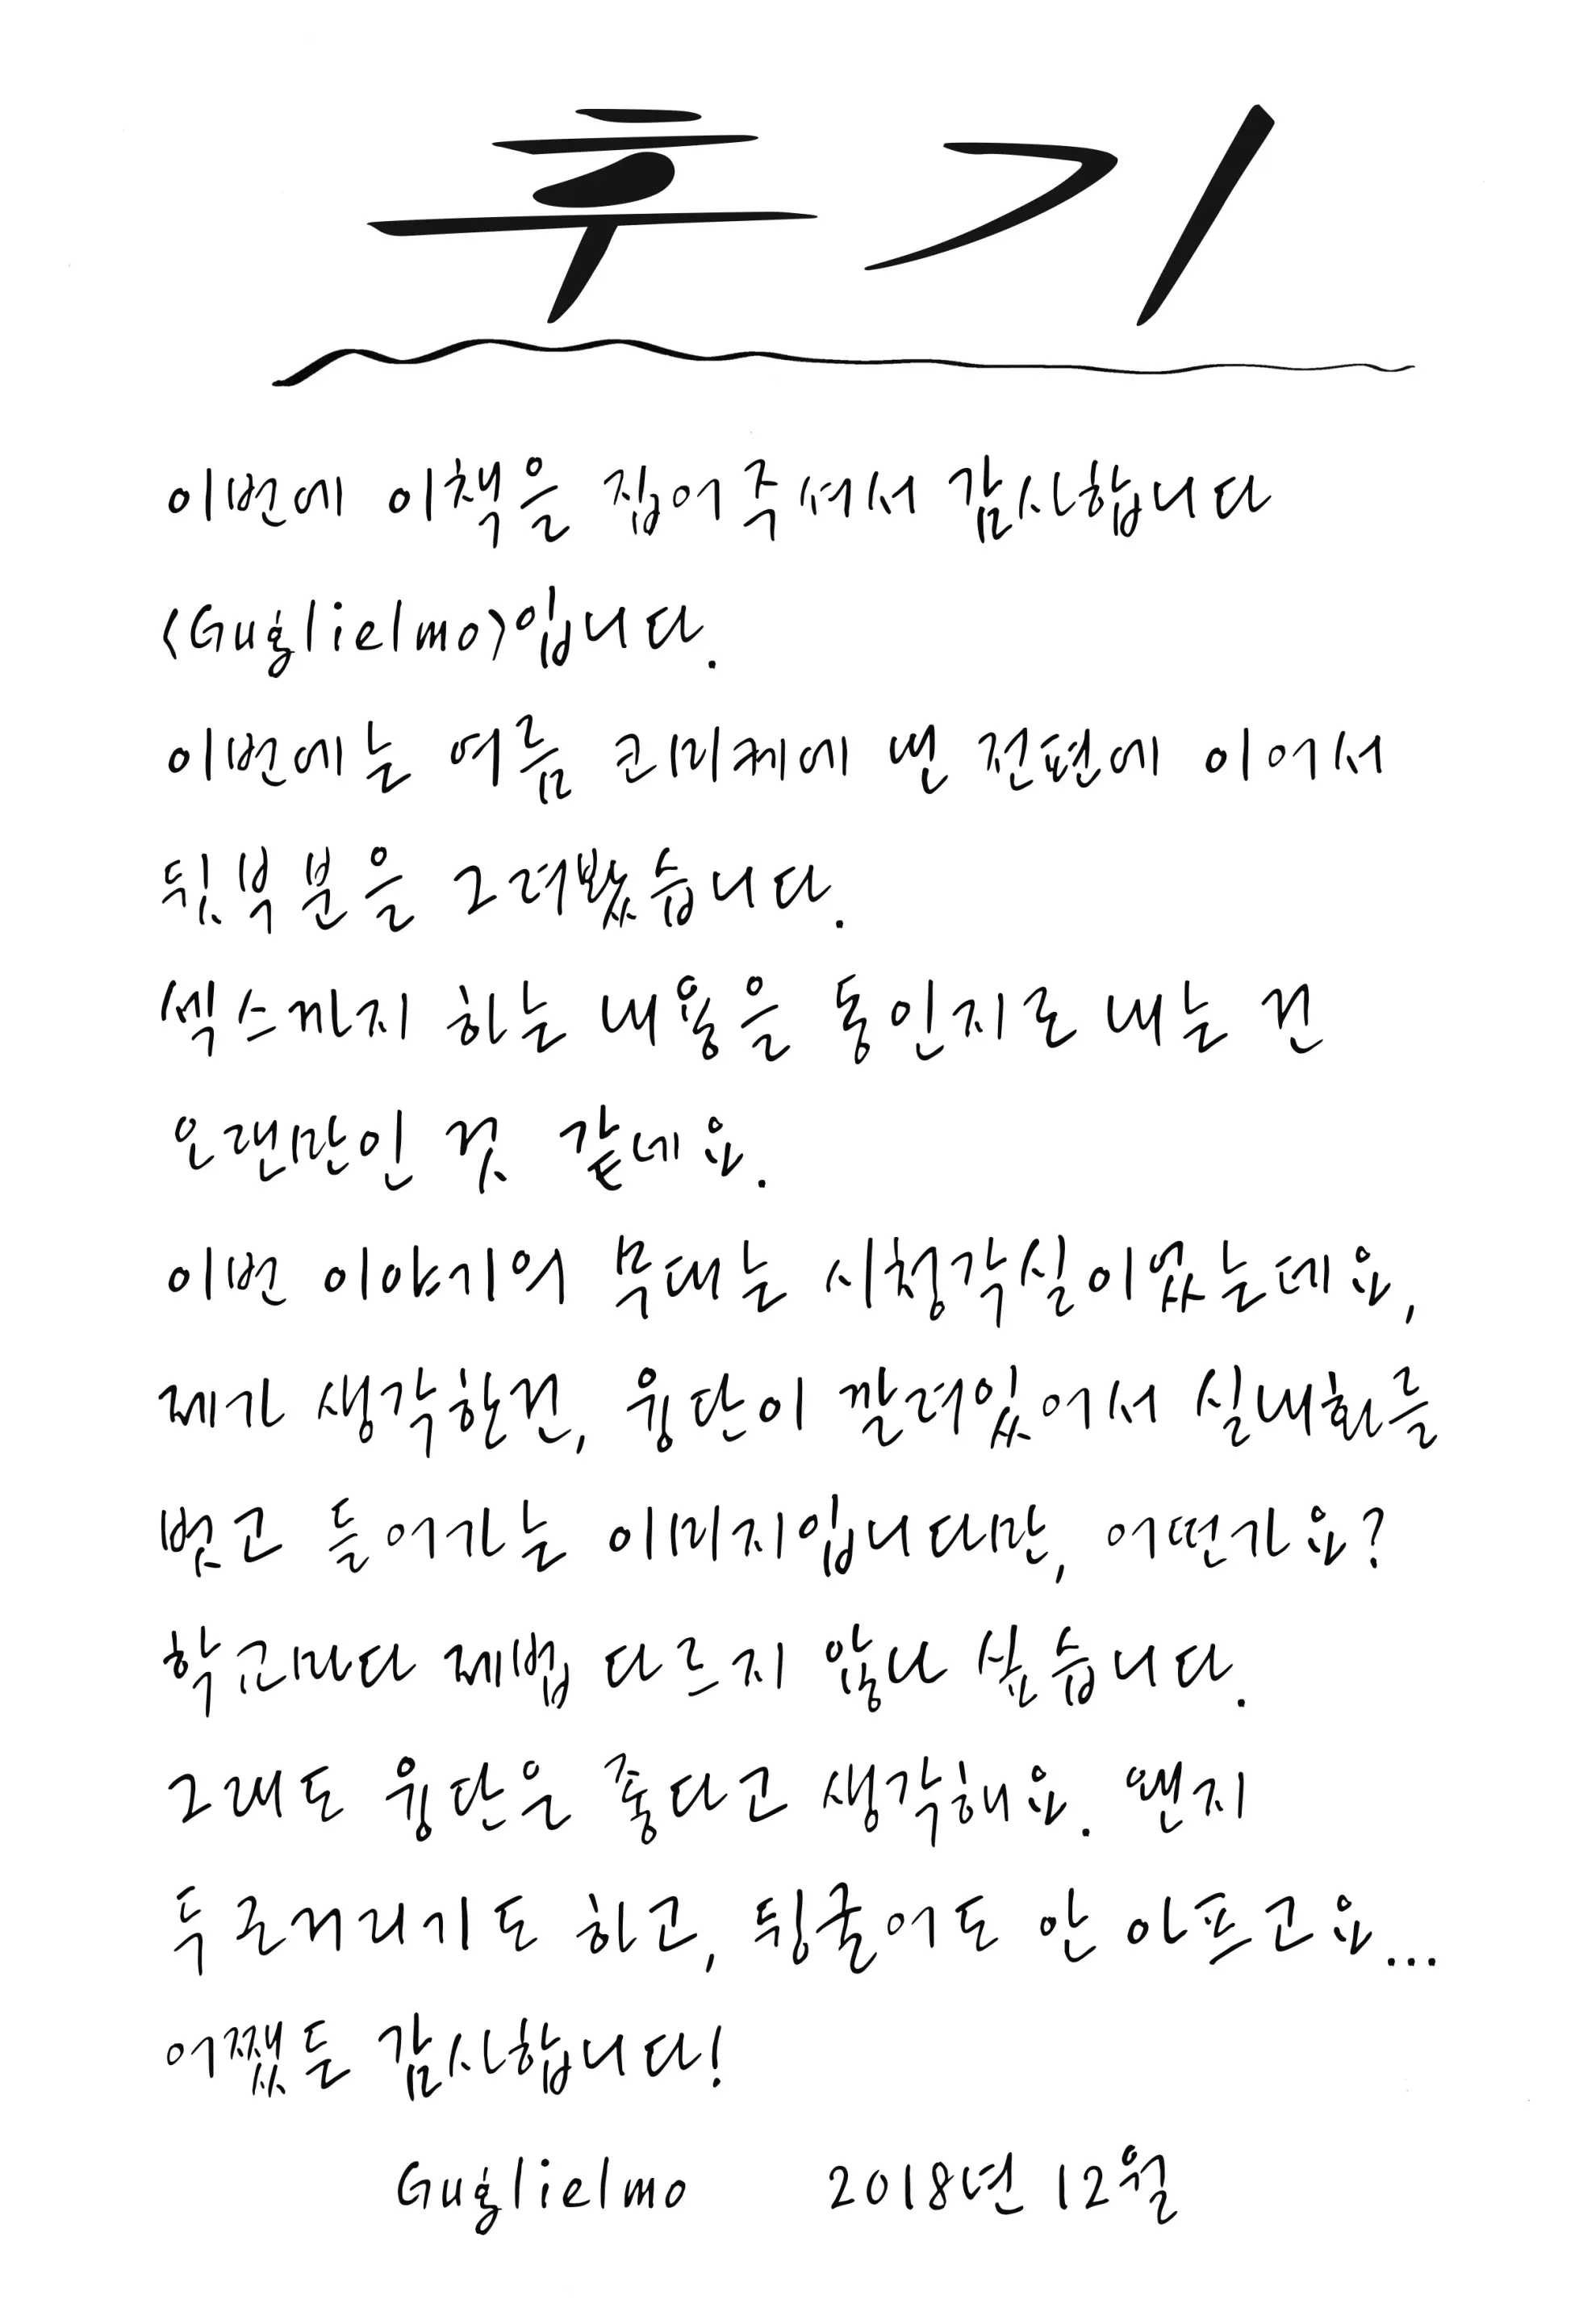 후기
이번에 이책을 집어주셔서 감사합니다
<Guglielmo>입니다.
이번에는 여름 코미케에 낸 전편에 이어서
뒷부분을 그려봤습니다.
섹스까지 하는 내용을 동인지로 내는 건
오랜만인 것 같네요.
이번 이야기의 무대는 시청각실이었는데요,
제가 생각한건, 융단이 깔려있어서 실내화를
벗고 들어가는 이미지입니다만, 어떤가요?
학교마다 제법 다르지 않나 싶습니다.
그래도 융단은 좋다고 생각해요. 왠지
두근거리기도 하고, 뒹굴어도 안 아프고요...
어쨌든 감사합니다!
Guglielmo 2018년 12월